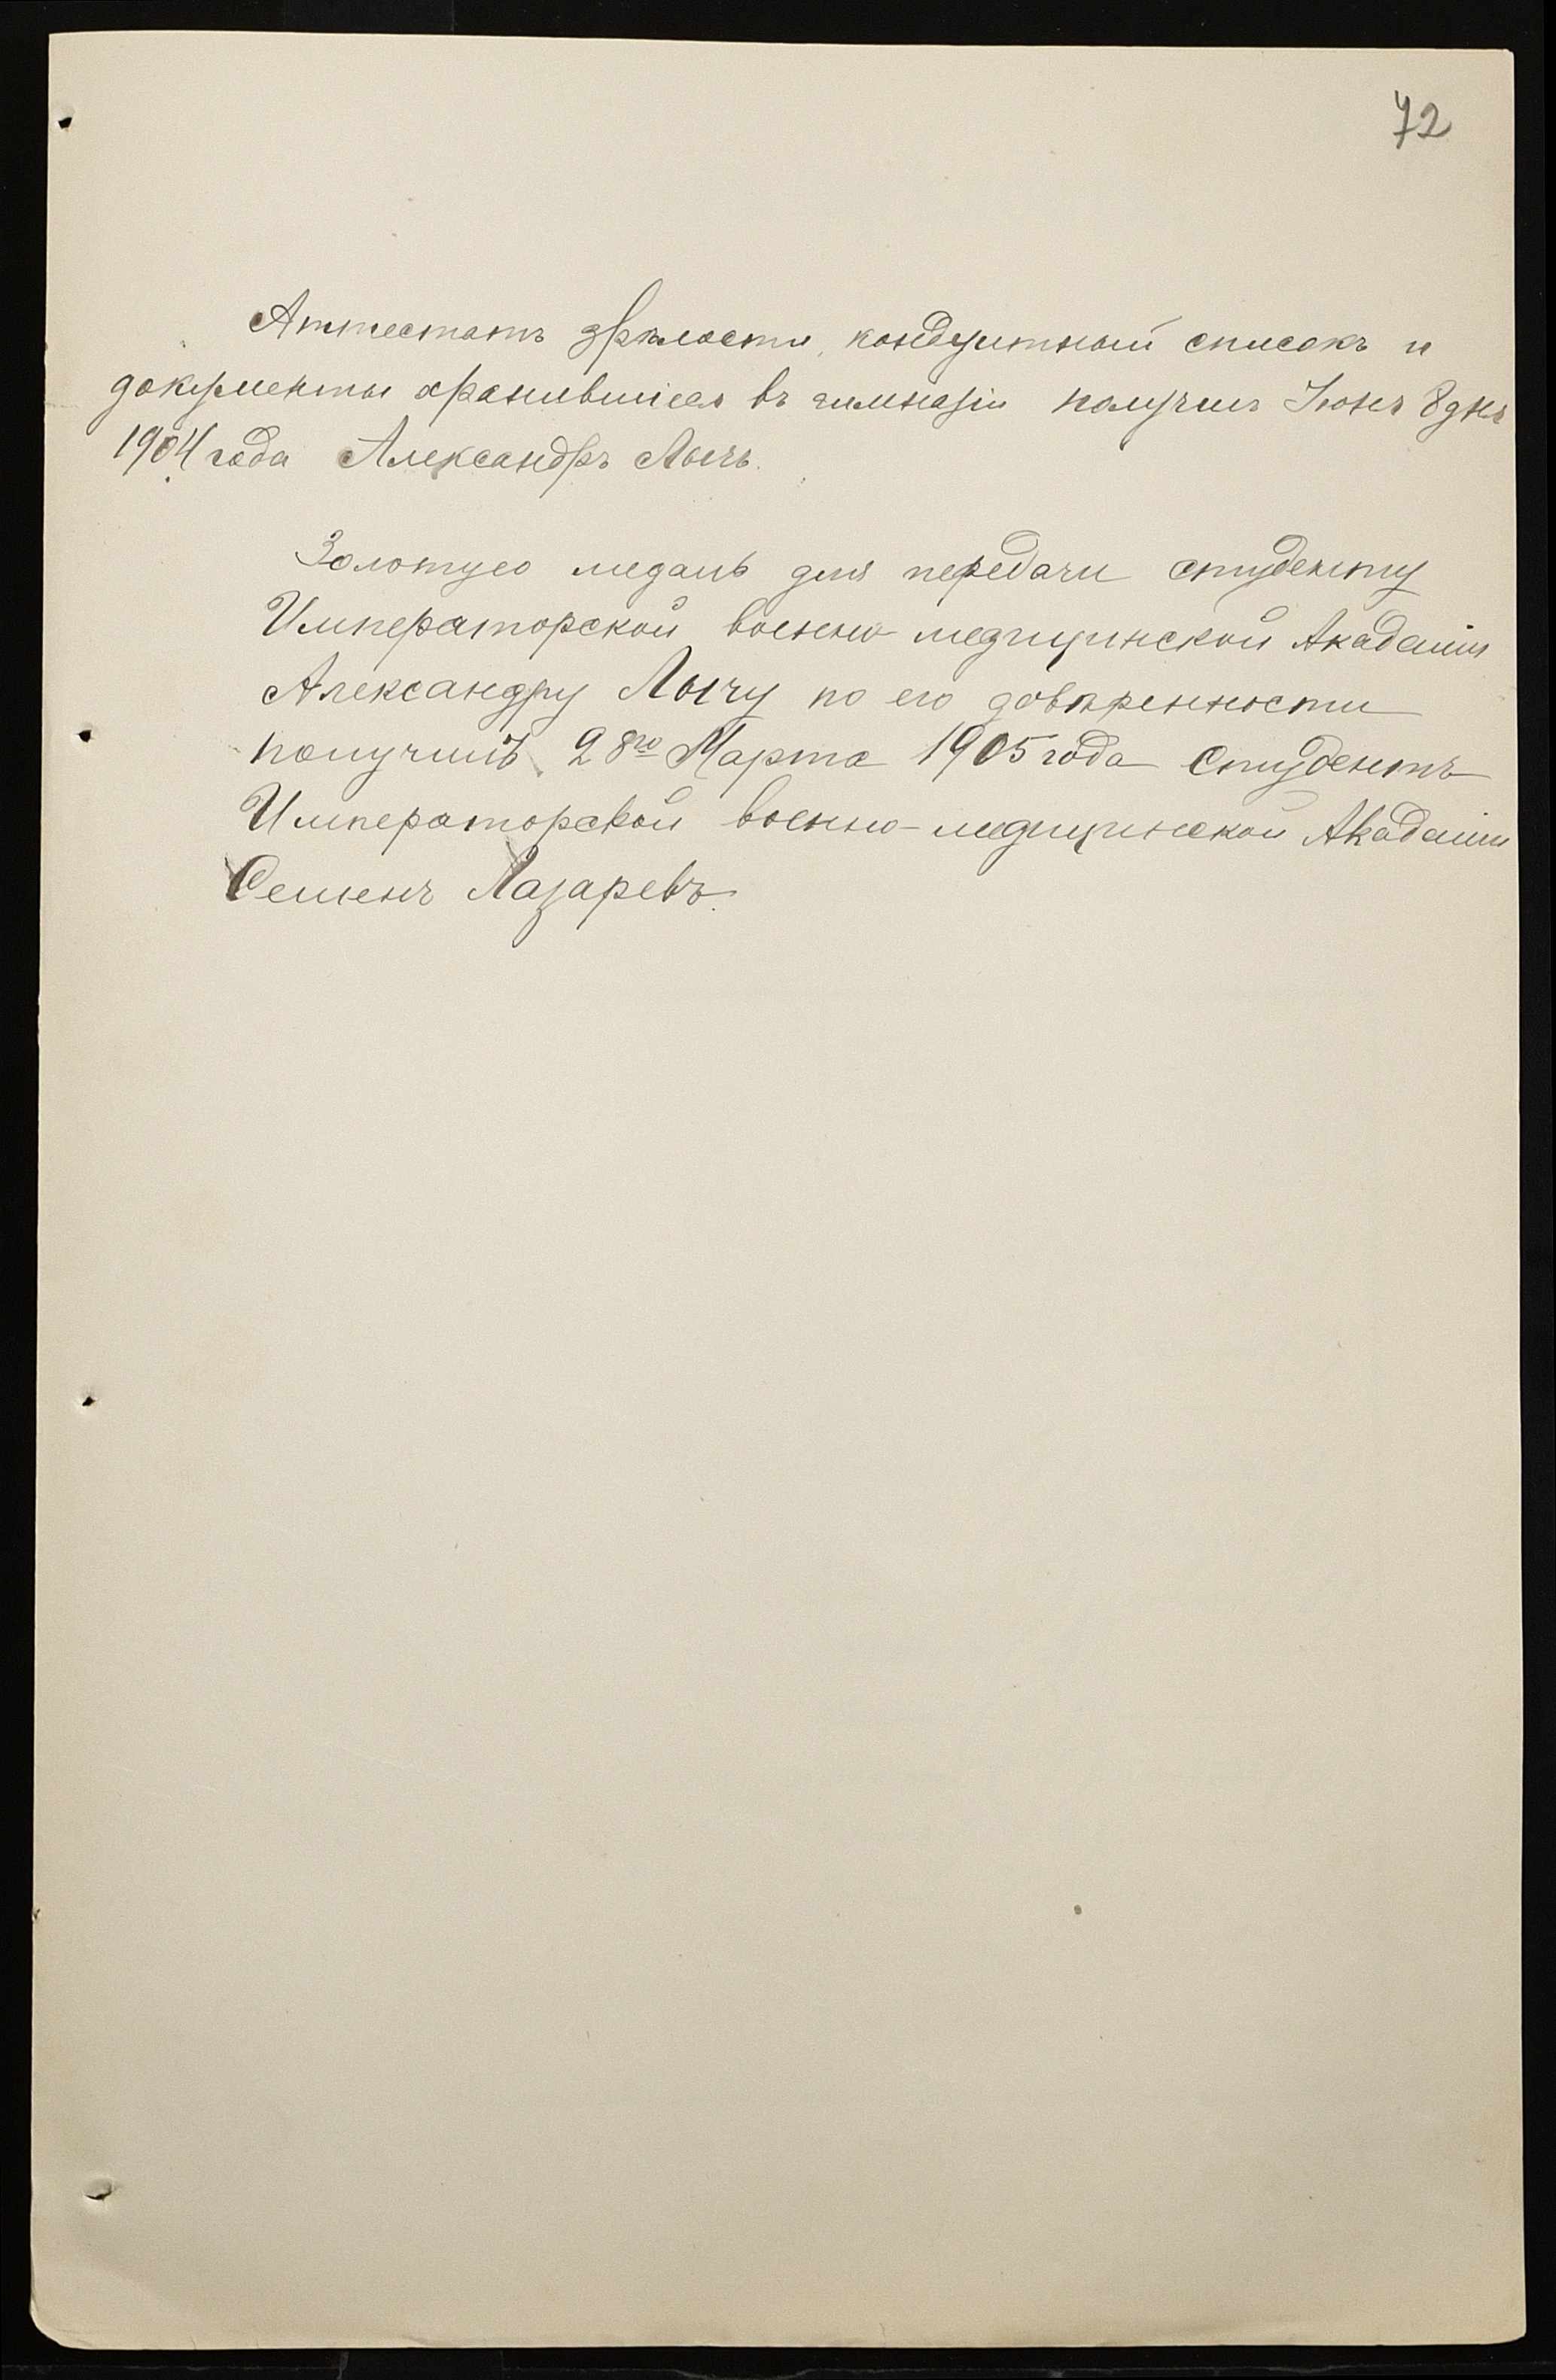 72
Аттестатъ зрѣлости, кондуитный списокъ и
документы хранившіеся въ гимназіи получилъ Іюня 8 дня
1904 года Александръ Лычъ.
Золотую медаль для передачи студенту
Императорской военно-медицинской Академіи
Александру Лычу по его довѣренности
получилъ 28го Марта 1905 года Студентъ
Императорской военно-медицинской Академіи
Семенъ Лазаревъ.